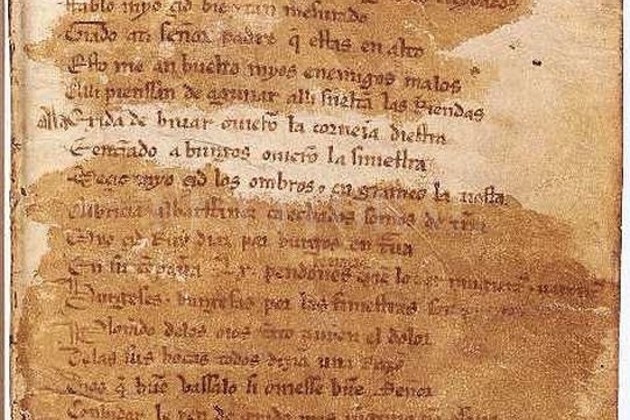 Fablo myo çid bien τ tan mesurado
Grado ati señor padre q̃ estas en alto
Esto me an buelto myos enemigos malos
Alli pienssan de aguiiar alli sueltan las Riendas
Ala exida de biuar ouierõ la corneia diestra
E entrãdo a burgos ouierõ la siniestra
Meçio myo çid los ombros τ en grameo la tiesta
Albricia albarffanez ca echados somos de trr̃a
Myo çid Ruy diaz por burgos en traua
En su cõpaña Lx pendones
Burgeses τ burgesas por las finiestras son
Plorãdo delos oios tãto auyen el dolor
Delas sus bocas todos dizian una
Dios q̃ buẽ vassalo si ouiesse buẽ Señor
Conbidar le yen de grado mas